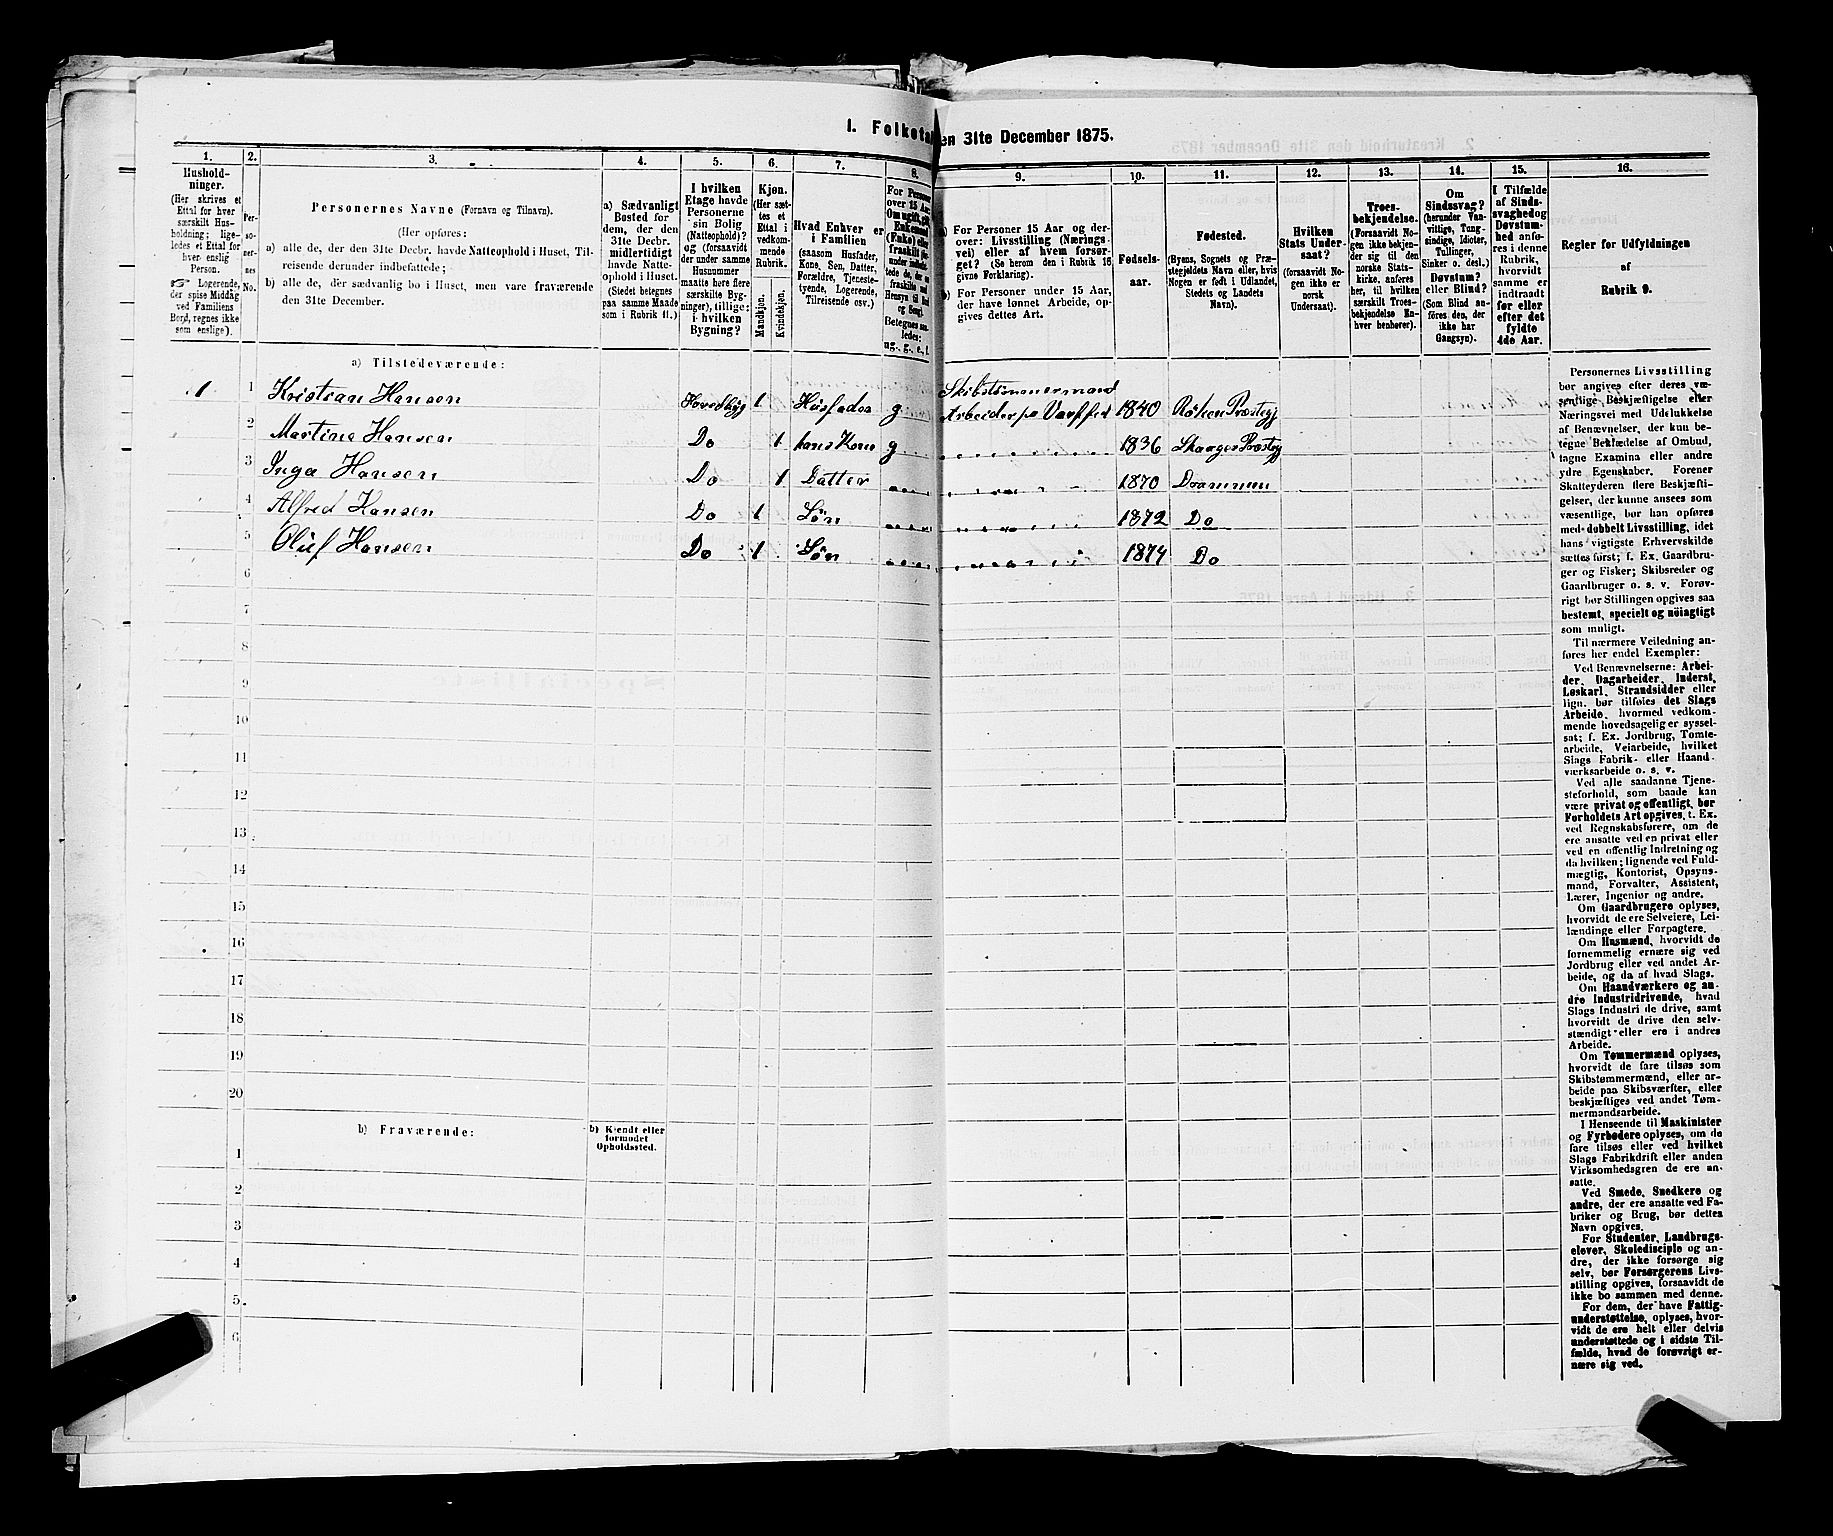 1. Folketæ
en 31te December 1875.
1. 2. 3. 4. 5. 6. 7. 8. 9. 10. 11. 12. 13. 14. 15. 16.
Hushold-
ninger.
(Her skrives et
Ettal for hver
særskilt Hus-
holdning; lige-
ledes et Ettal for
hver enslig
Person.
☞ Logerende,
der spise Middag
ved Familiens
Bord, regnes ikke
som enslige).
Per-
so-
ner-
nes
No.
Personernes Navne (Fornavn og Tilnavn).
(Her opføres:
a) alle de, der den 31te Decbr. havde Natteophold i Huset, Til-
reisende derunder indbefattede;
b) alle de, der sædvanlig bo i Huset, men vare fraværende
den 31te December.
a) Sædvanligt
Bosted for
dem, der den
31te Decbr.
midlertidigt
havde Natte-
ophold i Huset.
(Stedet betegnes
paa samme Maade
som i Rubrik 11.)
I hvilken
Etage havde
Personerne
sin Bolig
(Natteophold)?
og (forsaavidt
der under samme
Husnummer
maatte høre flere
særskilte Byg-
ninger), tillige:
i hvilken
Bygning?
Kjøn.
(Her sæt-
tes et
Ettal i
vedkom-
mende
Rubrik.
Mandkjøn.
Kvindekjøn.
Hvad Enhver er
i Familien
(saasom Husfader,
Kone, Søn, Datter,
Forældre, Tjeneste-
tyende, Logerende,
Tilreisende osv.)
For Personer
over 15 Aar:
Om ugift, gift,
Enkemand
(Enke) eller
fraskilt
Betegnes saa-
ledes:
ug., g., e., f.
a) For Personer 15 Aar og der-
over: Livsstilling (Nærings-
vei) eller af hvem forsør-
get? (Se herom den i Rubrik 16
givne Forklaring).
b) For Personer under 15 Aar,
der have lønnet Arbeide, op-
gives dettes Art.
Fødsels-
aar.
Fødested.
(Byens, Sognets og Præ-
stegjeldets Navn eller, hvis
Nogen er født i Udlandet,
Stedets og Landets
Navn).
Hvilken
Stats Under-
saat?
(forsaavidt No-
gen ikke er
norsk
Undersaat).
Troes-
bekjendelse.
(Forsaavidt No-
gen ikke bekjen-
der sig til den
norske Stats-
kirke, anføres
her, til hvilken
særskilt Troes-
bekjendelse En-
hver henhører).
Om
Sindssvag?
(herunder Van-
vittige, Tung-
sindige, Idioter,
Tullinger,
Sinker o. desl.)
Døvstum?
eller Blind?
(Som Blind an-
føres den, der
ikke har
Gangsyn).
I Tilfælde
af Sinds-
svaghed og
Døvstum-
hed anfø-
res i denne
Rubrik,
hvorvidt
samme er
indtraadt
før eller
efter det
fyldte
4de Aar.
Regler for Udfyldningen
af
Rubrik 9.
a) Tilstedeværende:
1 1 Kristian Hansen Hovedbyg 1 Husfader g Skibstømmermand Arbeider på Værftet 1840 Røken Præstegj
2 Martine Hansen Do 1 hans Kone g 1836 Skauger Præstegj
3 Inga Hansen Do 1 Datter 1870 Drammen
4 Alfred Hansen Do 1 Søn 1872 Do
5 Oluf Hansen Do 1 Søn 1874 Do
6
7
8
9
10
11
12
13
14
15
16
17
18
19
20
b) Fraværende:
b) Kjendt eller
formodet
Opholdssted.
1
2
3
4
5
6
Personernes Livsstilling
bør angives efter deres væ-
sentlige Beskjæftigelse eller
Næringsvei med Udelukkelse
af Benævnelser, der kun be-
tegne Beklædelse af Ombud,
tagne Examina eller andre
ydre Egenskaber. Forener
Skatteyderen flere Beskjæfti-
gelser, der kunne ansees som
væsentlige, bør han opføres
med dobbelt Livsstilling, idet
hans vigtigste Erhvervskilde
sættes først; f. Ex. Gaardbru-
ger og Fisker; Skibsreder og
Gaardbruger o. s. v. Forøv-
rigt bør Stillingen opgives saa
bestemt, specielt og nøiagtigt
som muligt.
Til nærmere Veiledning an-
føres her endel Exempler:
Ved Benævnelserne: Arbei-
der, Dagarbeider, Inderst,
Løskarl, Strandsidder eller
lign. bør tilføies det Slags
Arbeide, hvormed vedkom-
mende hovedsagelig er syssel-
sat; f. Ex. Jordbrug, Tomte-
arbeide, Veiarbeide, hvilket
Slags Fabrik- eller Haand-
værksarbeide o. s. v.
Ved alle saadanne Tjene-
steforhold, som baade kan
være privat og offentligt, bør
Forholdets Art opgives, t. Ex.
ved Regnskabsførere, om de
ere ansatte ved en privat eller
ved en offentlig Indretning og
da hvilken; lignende ved Fuld-
mægtig, Kontorist, Opsyns-
mand, Forvalter, Assistent,
Lærer, Ingeniør og andre.
Om Gaardbrugere oplyses,
hvorvidt de ere Selveiere, Lei-
lændinge eller Forpagtere.
Om Husmænd, hvorvidt de
fornemmelig ernære sig ved
Jordbrug eller ved andet Ar-
beide, og da af hvad Slags.
Om Haandværkere og an-
dre Industridrivende, hvad
Slags Industri de drive, samt
hvorvidt de drive den selv-
stændigt eller ere i andres
Arbeide.
Om Tømmermænd oplyses,
hvorvidt de fare tilsøs som
Skibstømmermænd, eller ar-
beide paa Skibsværfter, eller
beskjæftiges ved andet Tøm-
mermandsarbeide.
I Henseende til Maskinister
og Fyrbødere oplyses, om de
fare tilsøs eller ved hvilket
Slags Fabrikdrift eller anden
Virksomhedsgren de ere an-
satte.
Ved Smede, Snedkere og
andre, der ere ansatte ved Fa-
briker og Brug, bør dettes
Navn opgives.
For Studenter, Landbrugs-
elever, Skoledisciple og an-
dre, der ikke forsørge sig
selv, bør Forsørgerens Livs-
stilling opgives, forsaavidt de
ikke bo sammen med denne.
For dem, der have Fattig-
understøttelse, oplyses, hvor-
vidt de ere helt eller delvis
understøttede og i sidste Til-
fælde, hvad de forøvrigt er-
nære sig ved.